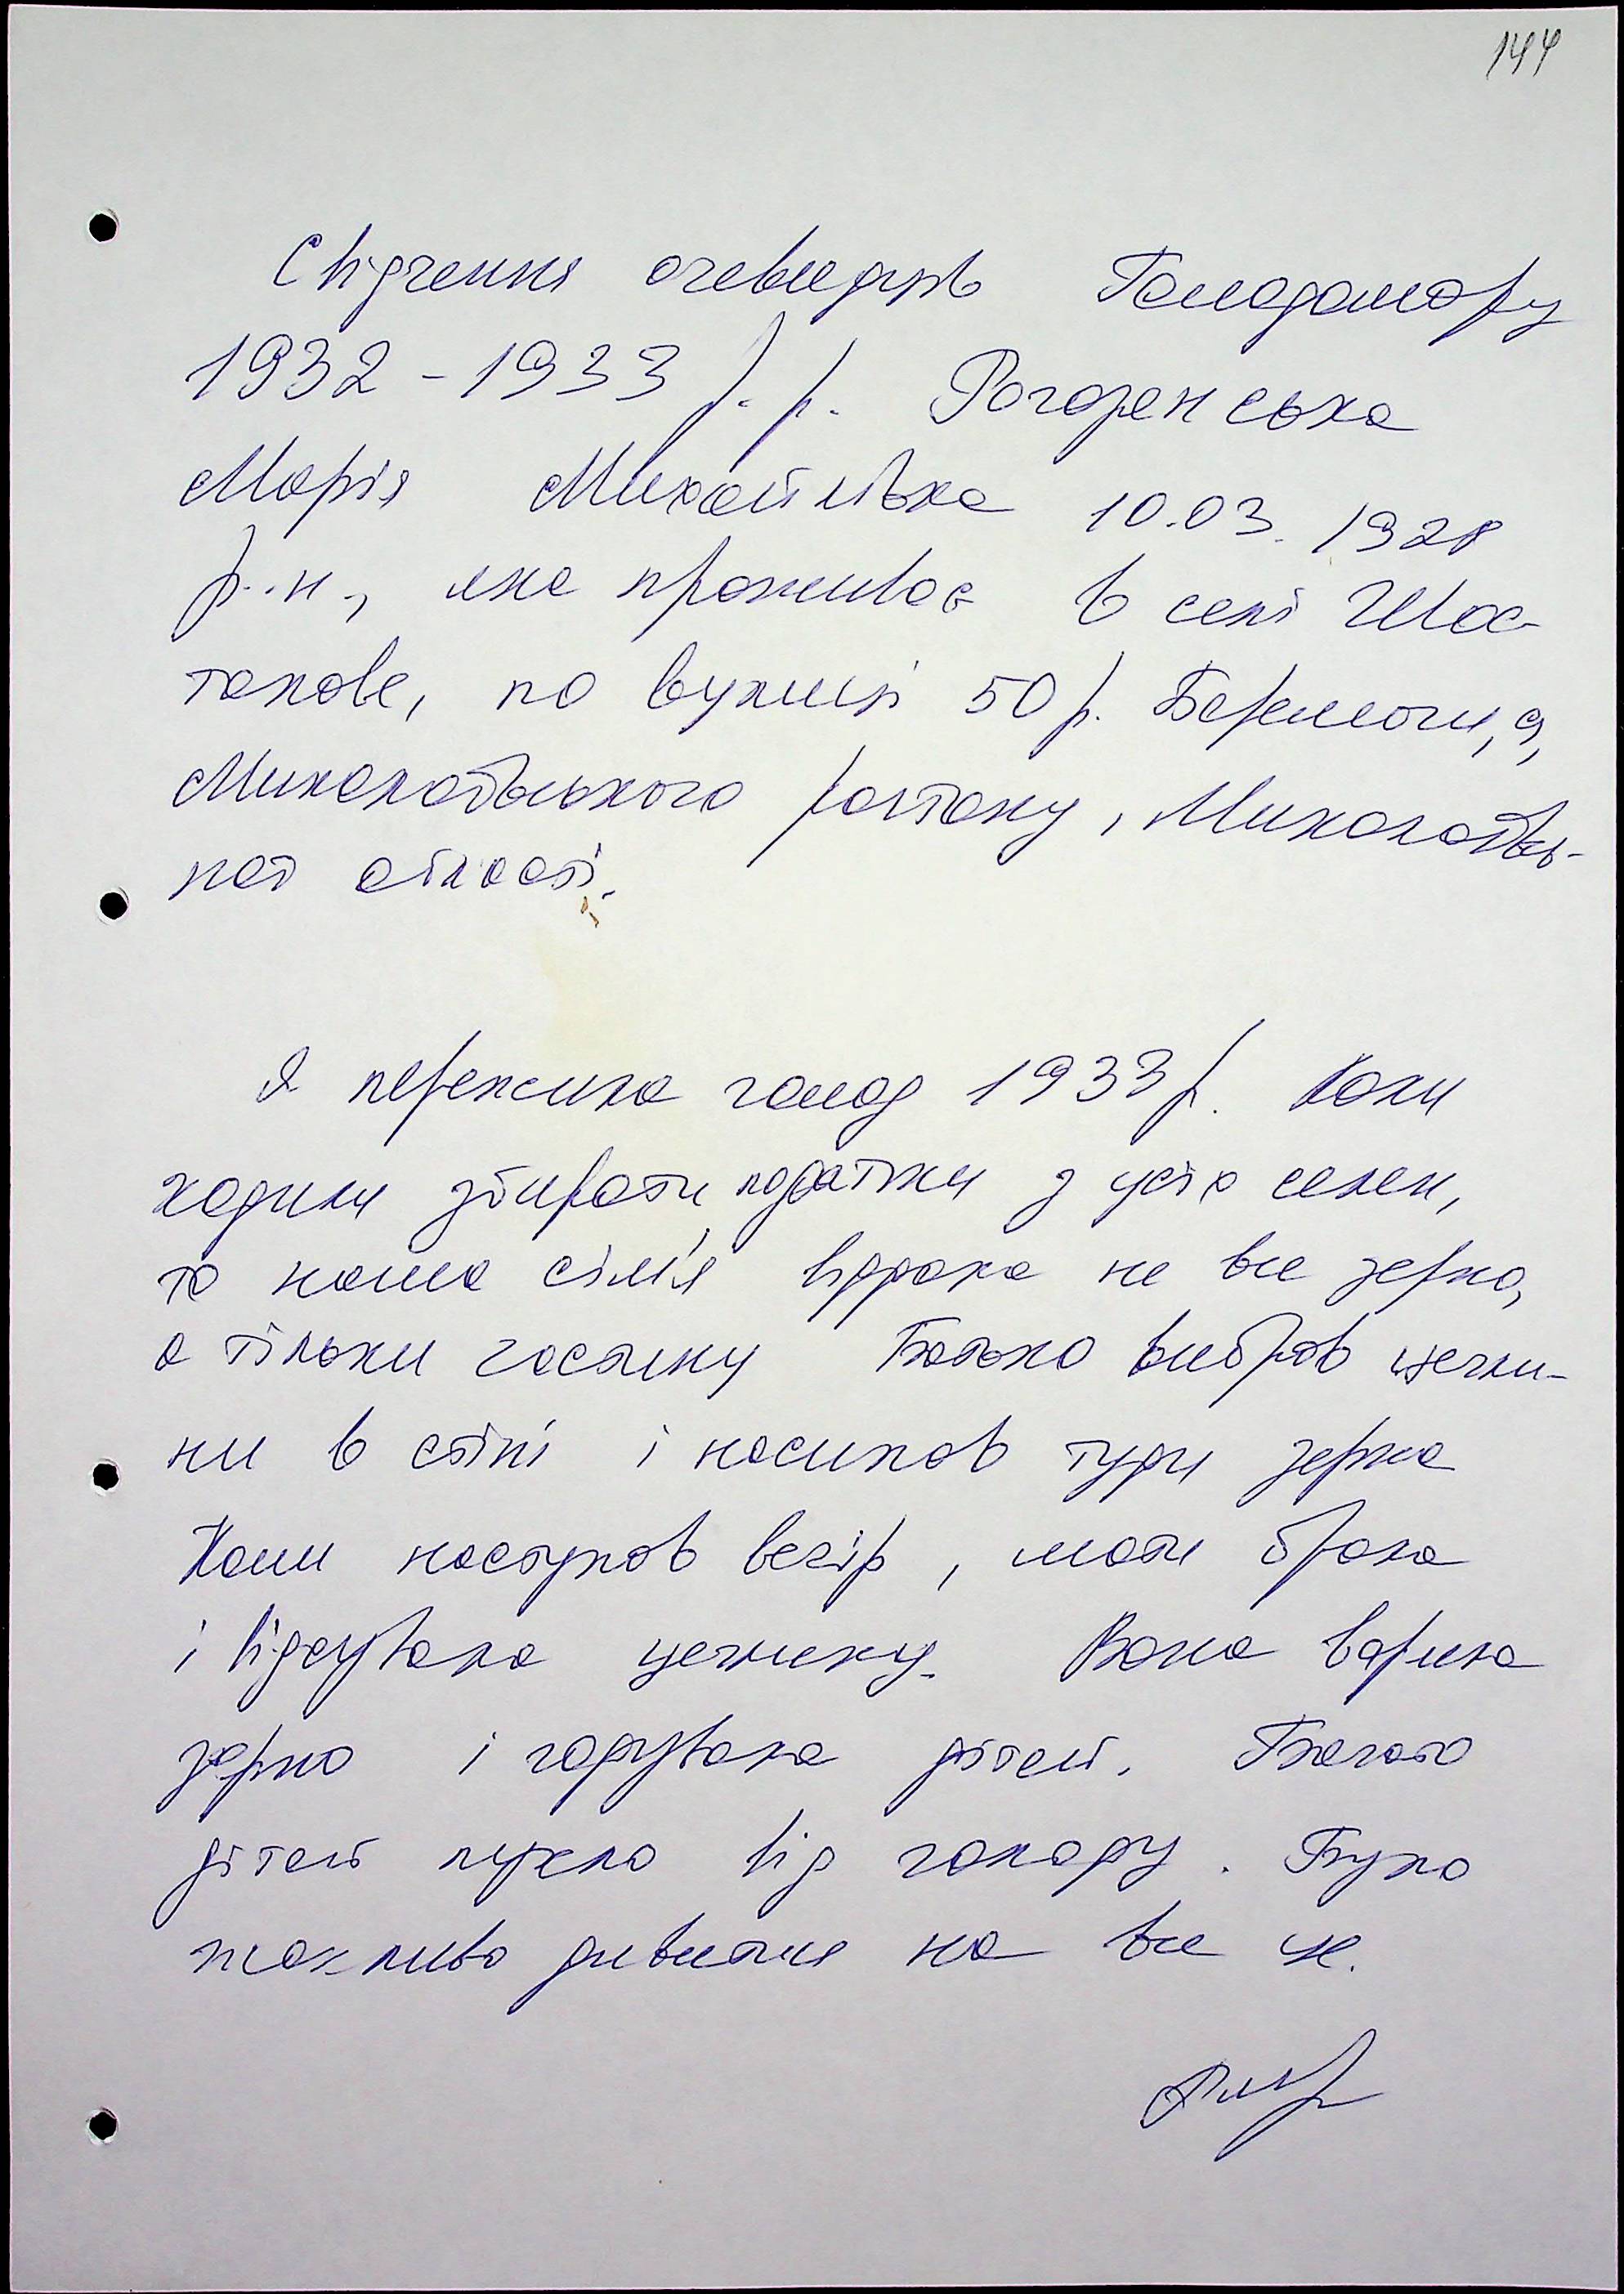 144
Свідчення очевидців Голодомору
1932-1933 р.р.
Марія Михайлівна 10.03.1928
р.н., яка проживає в селі Шос-
такове, по вулиці 50 р. Перемоги, 9,
Миколаївського району, Миколаївсь-
кої області.
Я пережила голод 1933 р. Коли
ходили збирати податки з усіх селян,
то наша сім'я віддала не все зерно,
а тільки частину Батько вибрав цегли-
ни в стіні і насипав туди зерна
Коли наступав вечір, мати брала
і відсувала цеглину. Вона варила
зерно і годувала дітей. Багато
дітей пухло від голоду. Було
жахливо дивитися на все це.